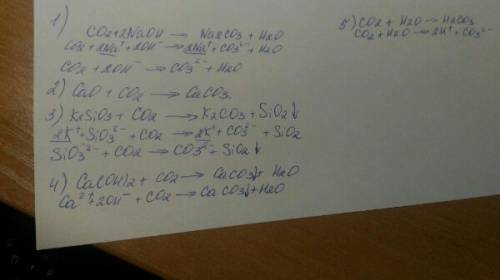 1)
CO2+2NaOH → Na2CO3 + H2O
CO2 + 2Na⁺ + 2OH⁻ → 2Na⁺ + CO3²⁻ + H2O
CO2 + 2OH⁻ → CO3²⁻ + H2O
2) CaO + CO2 → CaCO3.
3) K2SiO3 + CO2 → K2CO3 + SiO2↓
2K⁺ + SiO3²⁻ + CO2 → 2K⁺ + CO3²⁻ + SiO2
SiO3²⁻ + CO2 → CO3²⁻ + SiO2↓
4) Ca(OH)2 + CO2 → CaCO3↓ + H2O
Ca²⁺ + 2OH⁻ + CO2 → CaCO3↓ + H2O
5) CO2 + H2O → H2CO3
CO2 + H2O → 2H⁺ + CO3²⁻